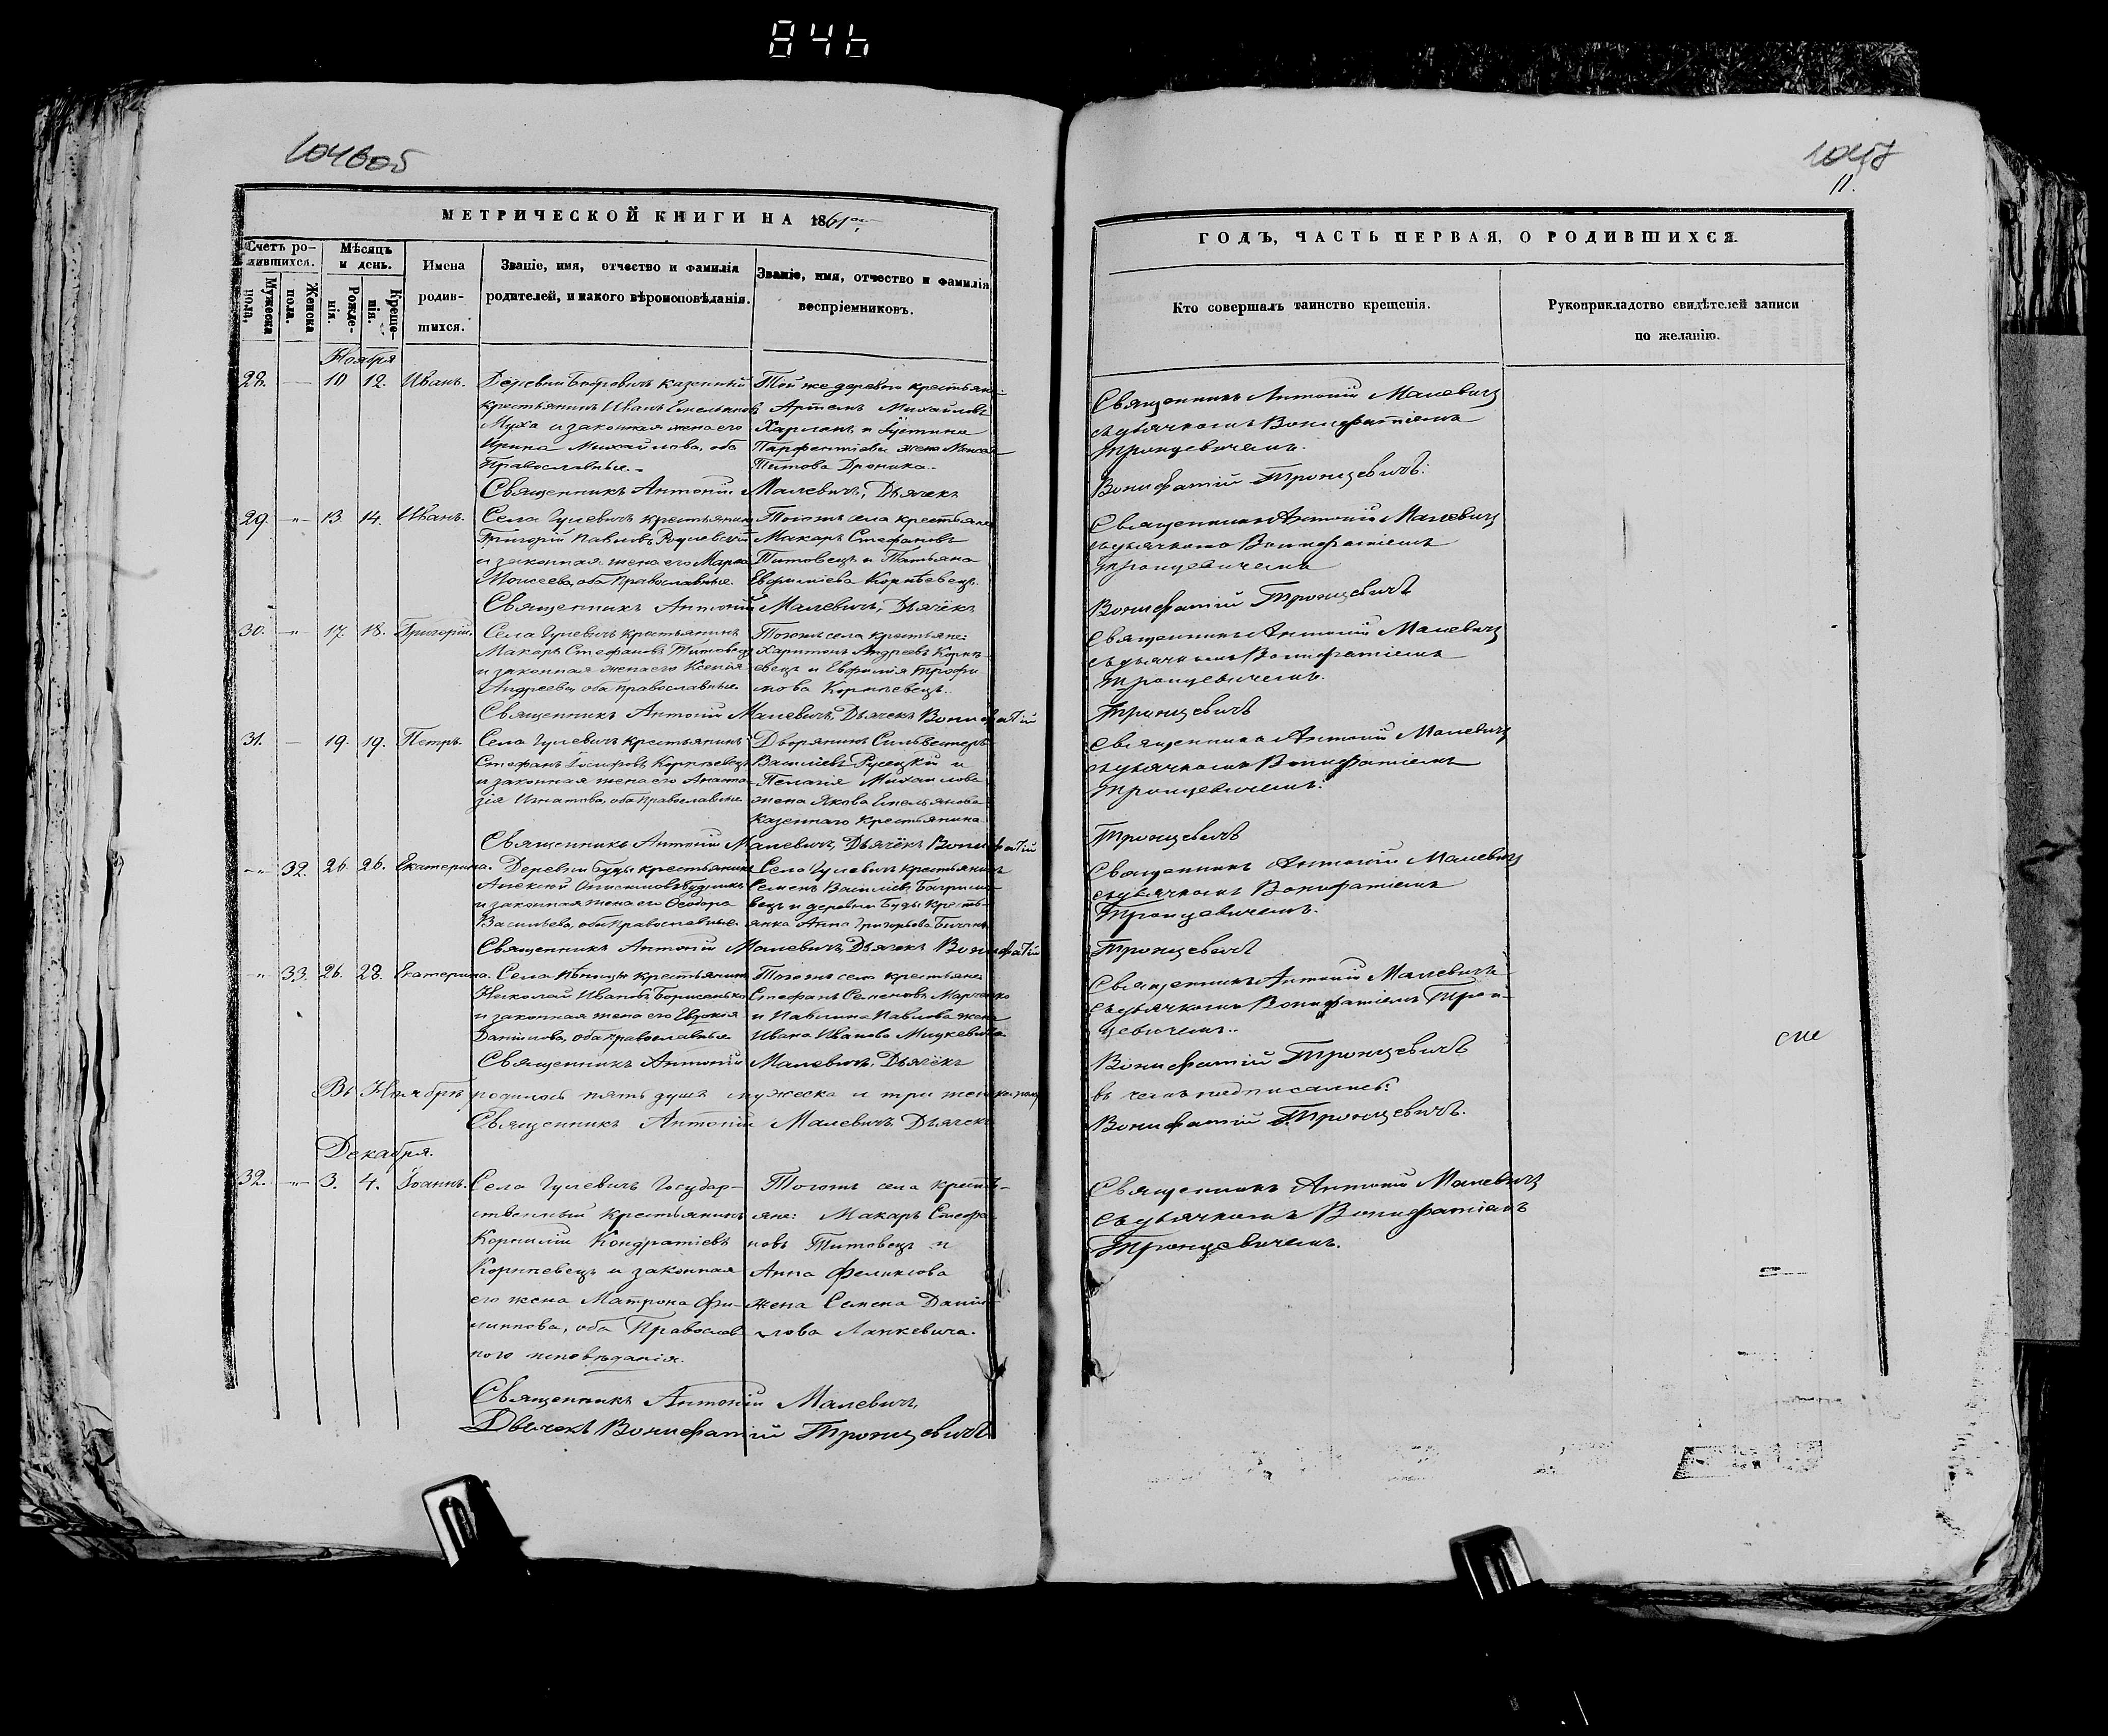 846
1047
104605
11.
МЕТРИЧЕСКОЙ КНИГИ НА 1861 ой
Счетъ ро-
дившихся.
Мужеска
пола,
Женска
пола.
Мѣсяцъ
и день.
Рожде-
нія.
Креще-
нія.
Имена
родив-
шихся.
Званіе, имя, отчество и фамилія
родителей, и какого вѣроисповѣданія.
Званіе, имя, отчество и фамилія
воспріемниковъ.
Ноября
28. — 10 12. Иванъ.
Деревни казенный
крестьянинъ Иванъ Емельяновъ
Муха и законная жена его
Ирина Михайлова, оба
Православные.
Той же деревни крестьяне:
Артемъ Михайловъ
Харланъ и Іустина
Парфентіева жена Моисея
Титова Дроника.
Священникъ Антоній Малевичъ, Дьячекъ
29. — 13. 14. Иванъ.
Села Гулевичъ крестьянинъ
Григорій Павловъ
и законная жена его Марѳа
Моисеева, оба Православные.
Тогожъ села крестьяне
Макаръ Стефановъ
Титовецъ и Татьяна
Евфиміева Корнѣевецъ.
Священникъ Антоній Малевичъ, Дьячёкъ
30. — 17. 18. Григорій.
Села Гулевичъ крестьянинъ
Макаръ Стефановъ Титовецъ
и законная жена его Ксенія
Андреева, оба православные.
Тогожъ села крестьяне:
Харитонъ Андреевъ Корнѣ-
евецъ и Евфимія Трофи
мова Корнѣевецъ.
Священникъ Антоній Малевичъ, Дьячекъ Вонифатій
31. — 19. 19. Петръ.
Села Гулевичъ крестьянинъ
Стефанъ Іосифовъ Корнѣевецъ
и законная жена его Анаста
зія Игнатова, оба Православные
Дворянинъ Сильвестеръ
Василіевъ Русецкій и
Пелагія Михайлова
жена Якова Емельянова
казеннаго крестьянина
Священникъ Антоній Малевичъ, Дьячёкъ Вонифатій
— 32. 26. 26. Екатерина.
Деревни Буды крестьянинъ
Алексѣй Онисимовъ
и законная жена его Ѳеодора
Васильева, оба Православные.
Села Гулевичъ крестьянинъ
Семенъ Василіевъ
вецъ и деревни Буды кресть-
янка Анна Григорьева
Священникъ Антоній Малевичъ, Дьячекъ Вонифатій
— 33. 26. 28. Екатерина.
Села крестьянинъ
Николай Ивановъ Борисенько
и законная жена его Евдокія
Даніилова, оба православные
Тогожъ села крестьяне
Стефанъ Семеновъ Марченко
и Павлина Павлова жена
Ивана Иванова Мицкевича
Священникъ Антоній Малевичъ, Дьячёкъ
Въ Ноябрѣ родилось пять душъ мужеска и три женска полу
Священникъ Антоній Малевичъ Дьячекъ
Декабря.
32. — 3. 4. Іоаннъ.
Села Гулевичъ Государ-
ственный крестьянинъ
Корнилій Кондратіевъ
Корнѣевецъ и законная
его жена Матрона Фи-
липпова, оба Православ
ного исповѣданія.
Тогожъ села кресть-
яне: Макаръ Стефа-
новъ Титовецъ и
Анна Феликсова
жена Семена Даніи-
лова Лапкевича.
Священникъ Антоній Малевичъ,
Дьячекъ Вонифатій Тронцевичъ
ГОДЪ, ЧАСТЬ ПЕРВАЯ, О РОДИВШИХСЯ.
Кто совершалъ таинство крещенія.
Рукоприкладство свидѣтелей записи
по желанію.
Священникъ Антоній Малевичъ
съ дьячкомъ Вонифатіемъ
Тронцевичемъ.
Вонифатій Тронцевичъ.
Священникъ Антоній Малевичъ
съ дьячкомъ Вонифатіемъ
Тронцевичемъ
Вонифатій Тронцевичъ
Священникъ Антоній Малевичъ
съ дьячкомъ Вонифатіемъ
Тронцевичемъ.
Тронцевичъ
Священникъ Антоній Малевичъ
съ дьячкомъ Вонифатіемъ
Тронцевичемъ.
Тронцевичъ
Священникъ Антоній Малевичъ
съ дьячкомъ Вонифатіемъ
Тронцевичемъ.
Тронцевичъ
Священникъ Антоній Малевичъ
съ дьячкомъ Вонифатіемъ Трон-
цевичемъ.
Вонифатій Тронцевичъ
въ чемъ подписались:
Вонифатій Тронцевичъ.
Священникъ Антоній Малевичъ
съ дьячкомъ Вонифатіемъ
Тронцевичемъ.